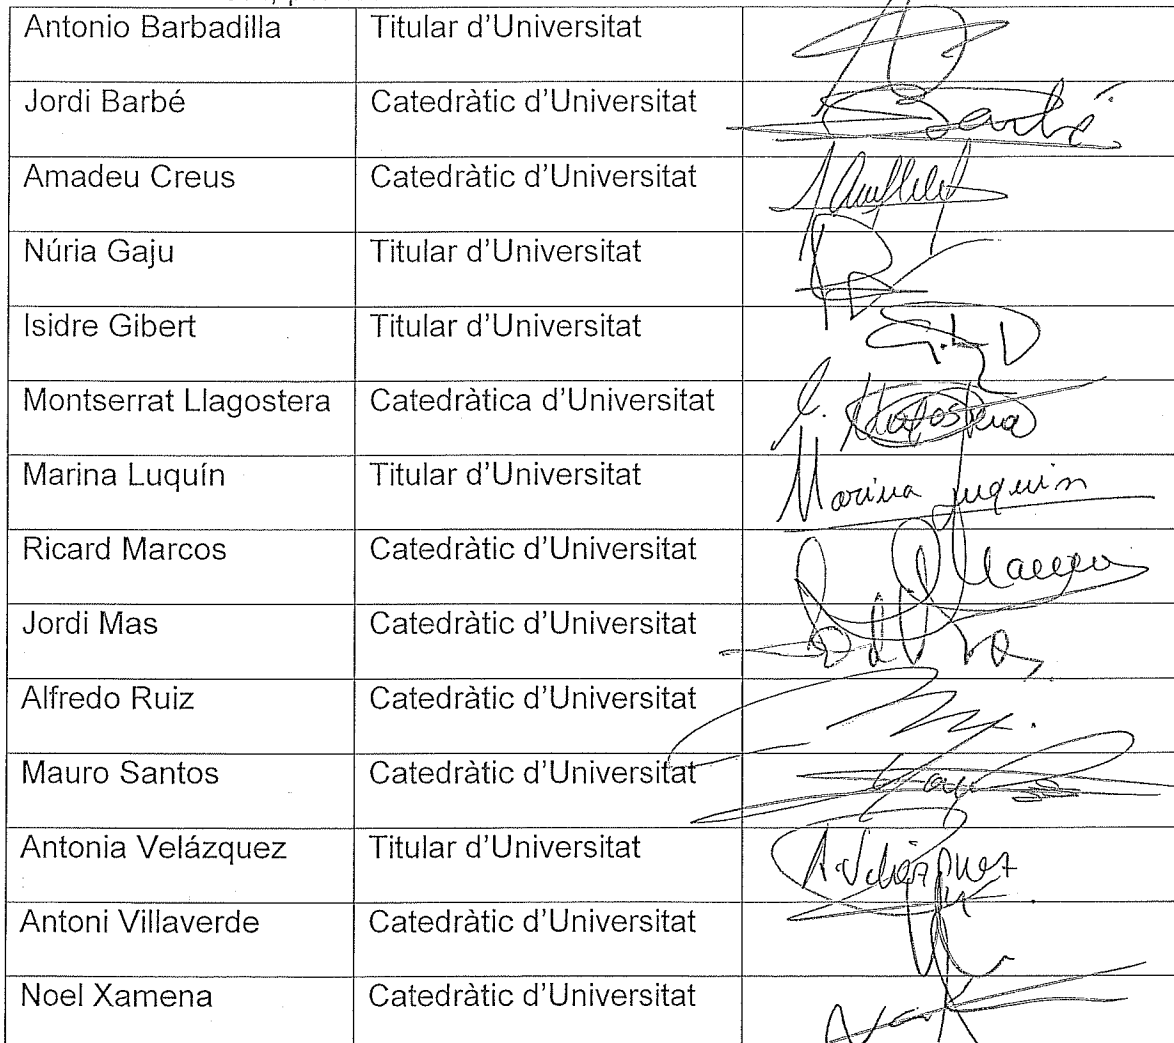 Antonio Barbadilla Titular d'Universitat
Jordi Barbé Catedràtic d'Universitat Barbé
Amadeu Creus Catedràtic d'Universitat
Núria Gaju Titular d'Universitat
Isidre Gibert Titular d'Universitat
Montserrat Llagostera Catedràtica d'Universitat Llagostera
Marina Luquín Titular d'Universitat Marina Luquin
Ricard Marcos Catedràtic d'Universitat
Jordi Mas Catedràtic d'Universitat
Alfredo Ruiz Catedràtic d'Universitat
Mauro Santos Catedràtic d'Universitat
Antonia Velázquez Titular d'Universitat A. Velázquez
Antoni Villaverde Catedràtic d'Universitat
Noel Xamena Catedràtic d'Universitat